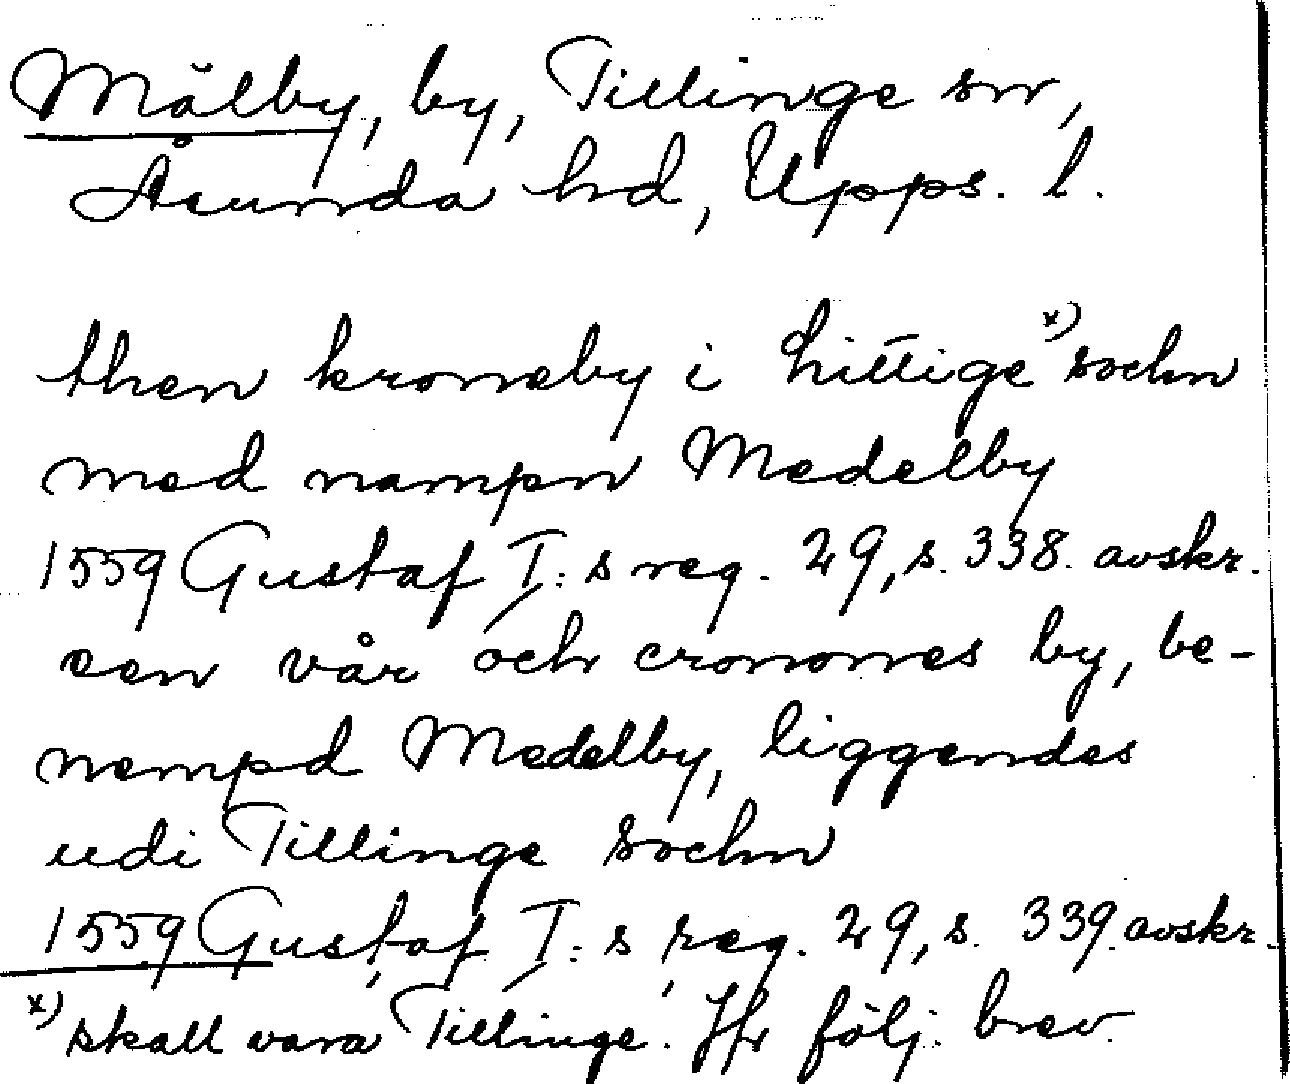 Målby, by, Tillinge sn,
Åsunda hd, Upps. l.
then kroneby i hittige x) sochn
med nampn Medelby
1559 Gustaf I:s reg. 29, s. 338. avskr.
een vår och cronones by, be-
nempd Medelby, liggendes
udi Tillinge sochn
1559 Gustaf I:s reg. 29, s. 339. avskr.
x) skall vara Tillinge. Jfr följ. brev.